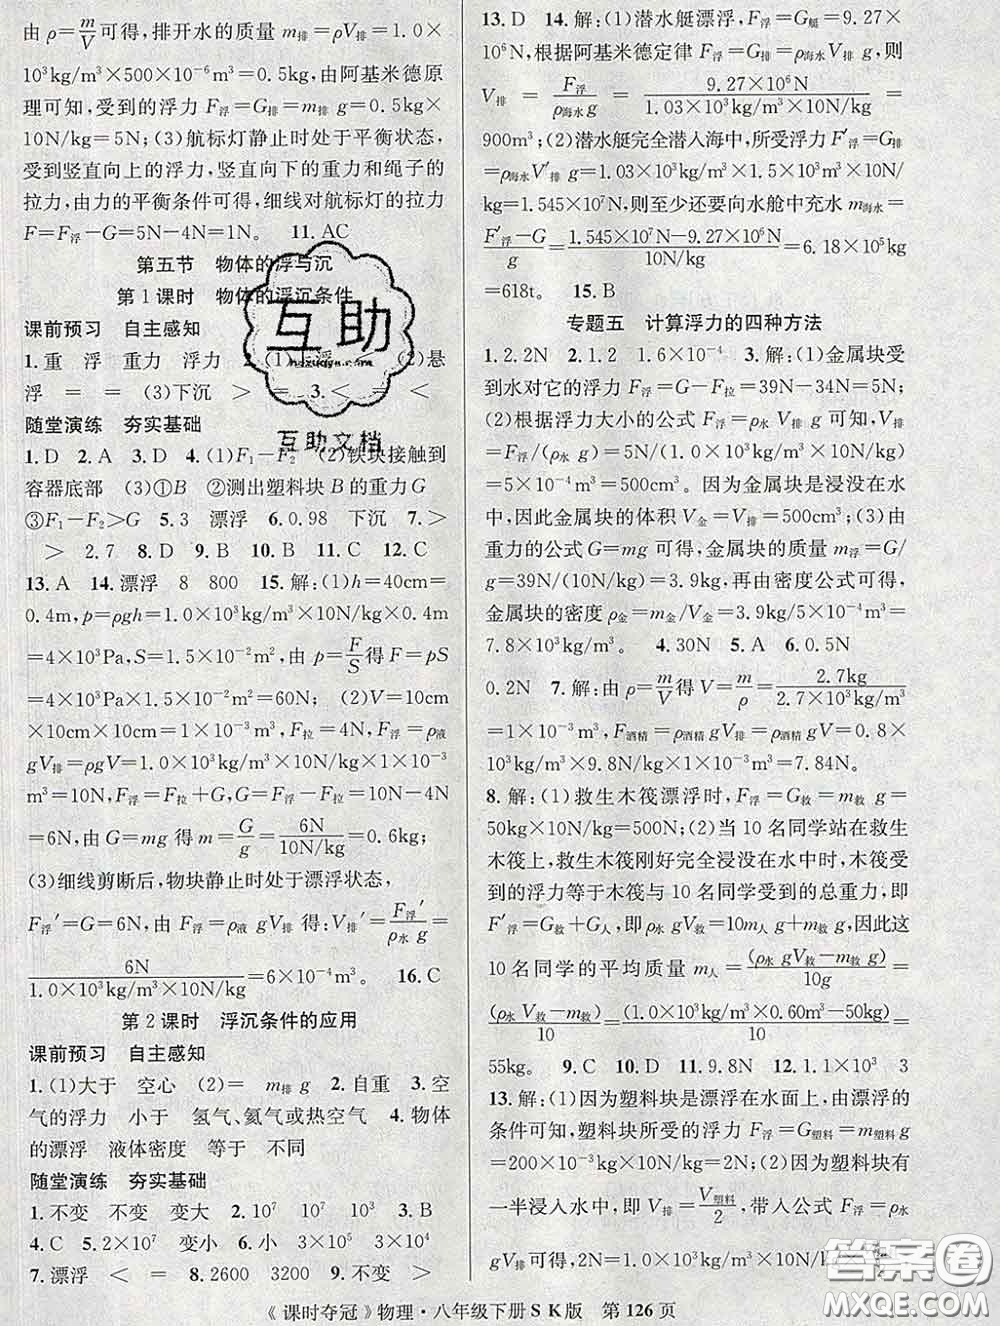 由 ρ=m/V 可得,排开水的质量 m排=ρV排=1.0×
10³kg/m³×500×10⁻⁶m³=0.5kg,由阿基米德原
理可知,受到的浮力 F浮=G排=m排 g=0.5kg×
10N/kg=5N;(3)航标灯静止时处于平衡状态,
受到竖直向上的浮力,竖直向下的重力和绳子的
拉力,由力的平衡条件可得,细线对航标灯的拉力
F=F浮-G=5N-4N=1N。 11. AC
第五节 物体的浮与沉
第 1 课时 物体的浮沉条件
课前预习 自主感知
1. 重 浮 重力 浮力 2. (1)上浮 (2)悬
浮 = = (3)下沉 > = 3. < = <
随堂演练 夯实基础
1. D 2. A 3. D 4. (1)F₁-F₂ (2)铁块接触到
容器底部 (3)①B ②测出塑料块 B 的重力 G
③F₁-F₂>G 5. 3 漂浮 6. 0.98 下沉 7. >
> 2.7 8. D 9. B 10. B 11. C 12. C
13. A 14. 漂浮 8 800 15. 解:(1)h=40cm=
0.4m,p=ρgh=1.0×10³kg/m³×10N/kg×0.4m
=4×10³Pa,S=1.5×10⁻²m²,由 p=F/S 得 F=pS
=4×10³Pa×1.5×10⁻²m²=60N; (2)V=10cm
×10cm×10cm=1×10⁻³m³,F拉=4N,F浮=ρ液
gV排=ρgV=1.0×10³kg/m³×10N/kg×1×10⁻³
m³=10N,F浮=F拉+G,G=F浮-F拉=10N-4N
=6N,由 G=mg 得 m=G/g=6N/10N/kg=0.6kg;
(3)细线剪断后,物块静止时处于漂浮状态,
F浮′=G=6N,由 F浮=ρ液 gV排 得:V排′=F浮′/ρ水 g=
6N/1.0×10³kg/m³×10N/kg=6×10⁻⁴m³。 16. C
第 2 课时 浮沉条件的应用
课前预习 自主感知
1. (1)大于 空心 (2)= m排 g 2. 自重 3. 空
气的浮力 小于 氢气、氦气或热空气 4. 物体
的漂浮 液体密度 等于 不同
随堂演练 夯实基础
1. 不变 不变 变大 2. 10⁷ 10⁷ 10⁷ 3. B
4. C 5. 2×10⁷ 变小 6. 3×10⁵ 3×10⁵
7. 漂浮 < = 8. 2600 3200 9. 不变 >
13. D 14. 解:(1)潜水艇漂浮,F浮=G艇=9.27×
10⁶N,根据阿基米德定律 F浮=G排=ρ海水V排 g,则
V排=F浮/ρ海水 g=9.27×10⁶N/1.03×10³kg/m³×10N/kg=
900m³;(2)潜水艇完全潜入海中,所受浮力 F′浮=G′排
=ρ海水V′排 g=1.03×10³kg/m³×1.5×10³m³×10N/
kg=1.545×10⁷N,则至少还要向水舱中充水 m海水=
F′浮-G/g=1.545×10⁷N-9.27×10⁶N/10N/kg=6.18×10⁵kg=
618t。 15. B
专题五 计算浮力的四种方法
1. 2.2N 2. 1.2 1.6×10⁻⁴ 3. 解:(1)金属块受
到水对它的浮力 F浮=G-F拉=39N-34N=5N;
(2)根据浮力大小的公式 F浮=ρ水 V排 g 可知,V排
=F浮/(ρ水 g)=5N/(1.0×10³kg/m³×10N/kg)
=5×10⁻⁴m³=500cm³。因为金属块是浸没在水
中,因此金属块的体积 V金=V排=500cm³;(3)由
重力的公式 G=mg 可得,金属块的质量 m浮=G/
g=39N/(10N/kg)=3.9kg,再由密度公式可得,
金属块的密度 ρ金=m金/V金=3.9kg/5×10⁻⁴m³=
7.8×10³kg/m³。 4. 30N 5. A 6. 0.5N
0.2N 7. 解:由 ρ=m/V 得 V=m/ρ=2.7kg/2.7×10³kg/m³
=1×10⁻³m³,F酒精=ρ酒精 gV排=ρ酒精 gV=0.8×
10³kg/m³×9.8N/kg×1×10⁻³m³=7.84N。
8. 解:(1)救生木筏漂浮时,F浮=G救=m救 g=
50kg×10N/kg=500N;(2)当 10 名同学站在救生
木筏上,救生木筏刚好完全浸没在水中时,木筏受
到的浮力等于木筏与 10 名同学受到的总重力,即
F′浮=G救+G人,即 ρ水 gV救=10m人 g+m救 g,因此这
10 名同学的平均质量 m人=(ρ水 gV救-m救 g)/10g=
(ρ水 V救-m救)/10=(1.0×10³kg/m³×0.60m³-50kg)/10=
55kg。 9. C 10. D 11. 9.8N 12. 1.1×10³ 3
13. 解:(1)因为塑料块是漂浮在水面上,由漂浮的
条件可知,塑料块所受的浮力 F浮=G塑料=m塑料 g
=200×10⁻³kg×10N/kg=2N;(2)因为塑料块有
一半浸入水中,即 V排=V塑料/2,带入公式 F浮=ρ水
gV排可得,2N=1.0×10³kg/m³×10N/kg×
《课时夺冠》物理·八年级下册 S K 版 第 126 页
互助
互助文档
答案圈